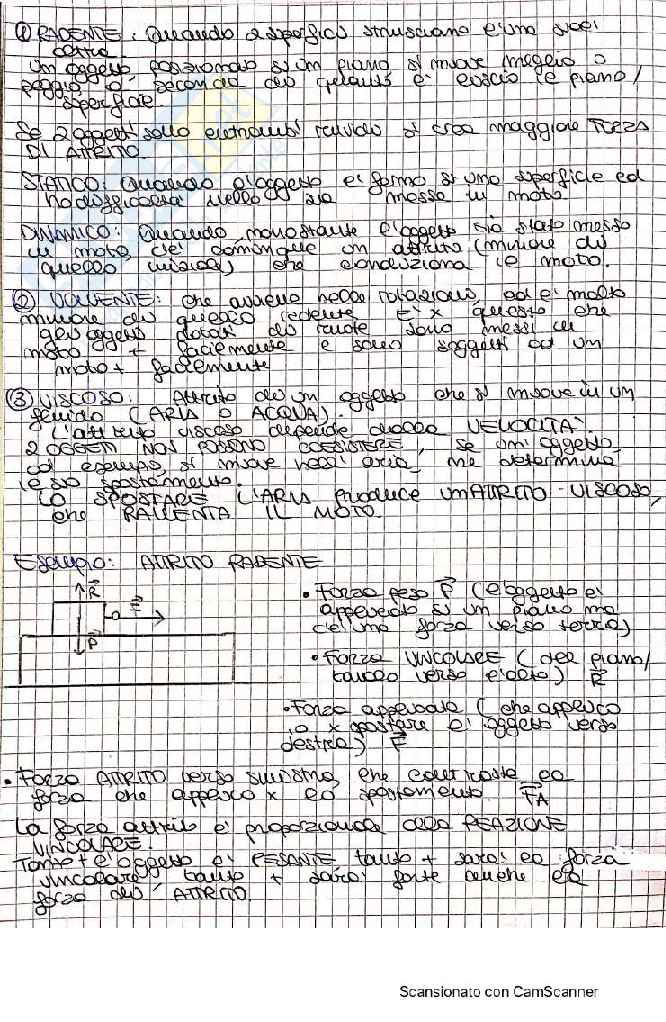 ① RADENTE: Quando 2 superfici strusciano l'una sull'
altra
Un oggetto posizionato su un piano si muove meglio o
peggio a seconda di quanto è liscio il piano/
superficie.
Se 2 oggetti sono entrambi ruvidi si crea maggiore FORZA
DI ATTRITO.
STATICO: Quando l'oggetto è fermo su una superficie ed
ha difficoltà nella sua messa in moto.
DINAMICO: Quando, nonostante l'oggetto sia stato messo
in moto, c'è comunque un attrito (minore di
quello iniziale) che condiziona il moto.
② VOLVENTE: che avviene nelle rotazioni, ed è molto
minore di quello radente. È x questo che
gli oggetti dotati di ruote sono messi in
moto + facilmente e sono soggetti ad un
moto + facilmente
③ VISCOSO: Attrito di un oggetto che si muove in un
fluido (ARIA O ACQUA).
L'attrito viscoso dipende dalla VELOCITÀ.
2 OGGETTI NON POSSONO COESISTERE, se un oggetto,
ad esempio, si muove nell'aria, ne determina
il suo spostamento.
LO SPOSTARE L'ARIA produce un ATTRITO VISCOSO,
che RALLENTA IL MOTO.
Esempio: ATTRITO RADENTE
R
F
P
• Forza peso P (l'oggetto è
appoggiato su un piano ma
c'è una forza verso terra)
• Forza VINCOLARE (del piano/
tavolo verso l'alto) R
• Forza applicata (che applico
io x spostare l'oggetto verso
destra) F
• Forza ATTRITO verso sinistra, che contrasta la
forza che applico x lo spostamento FA
La forza attrito è proporzionale alla REAZIONE
VINCOLARE.
Tanto + l'oggetto è PESANTE, tanto + sarà la forza
vincolare, tanto + sarà forte anche la
forza di ATTRITO.
Scansionato con CamScanner